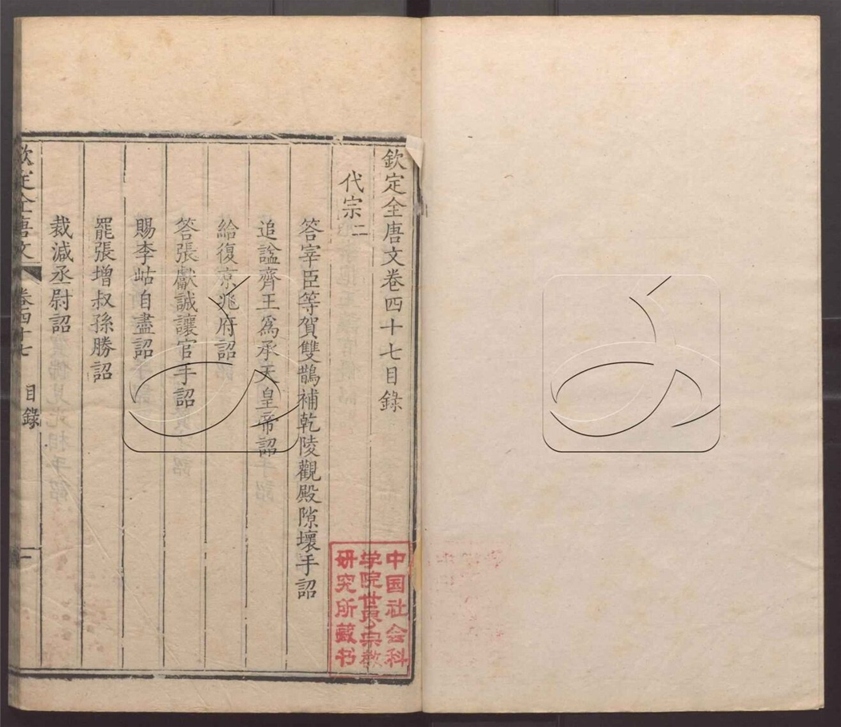 欽定全唐文卷四十七目錄
代宗二
答宰臣等賀雙鵲補乾陵觀殿隙壞手詔
追諡齊王為承天皇帝詔
給復京兆府詔
答張獻誠讓官手詔
賜李岵自盡詔
罷張增叔孫勝詔
裁減丞尉詔
欽定全唐文 卷四十七 目錄 一
中国社会科
学院世界宗教
研究所藏书